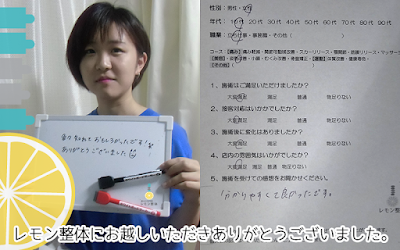 また来れたらおもしろかったです！
ありがとうございました
性別：男性・女性
年代：10代 20代 30代 40代 50代 60代 70代 80代 90代
1、施術はご満足いただけましたか？
大変満足 満足 普通 物足りない
2、接客対応はいかがでしたか？
大変満足 満足 普通 物足りない
3、施術後に変化はありましたか？
大変満足 満足 普通 物足りない
4、店内の雰囲気はいかがでしたか？
大変満足 満足 普通 物足りない
5、施術を受けての感想をお聞かせください。
分かりやすくて良かったです。
レモン整
レモン整体にお越しいただきありがとうございました。